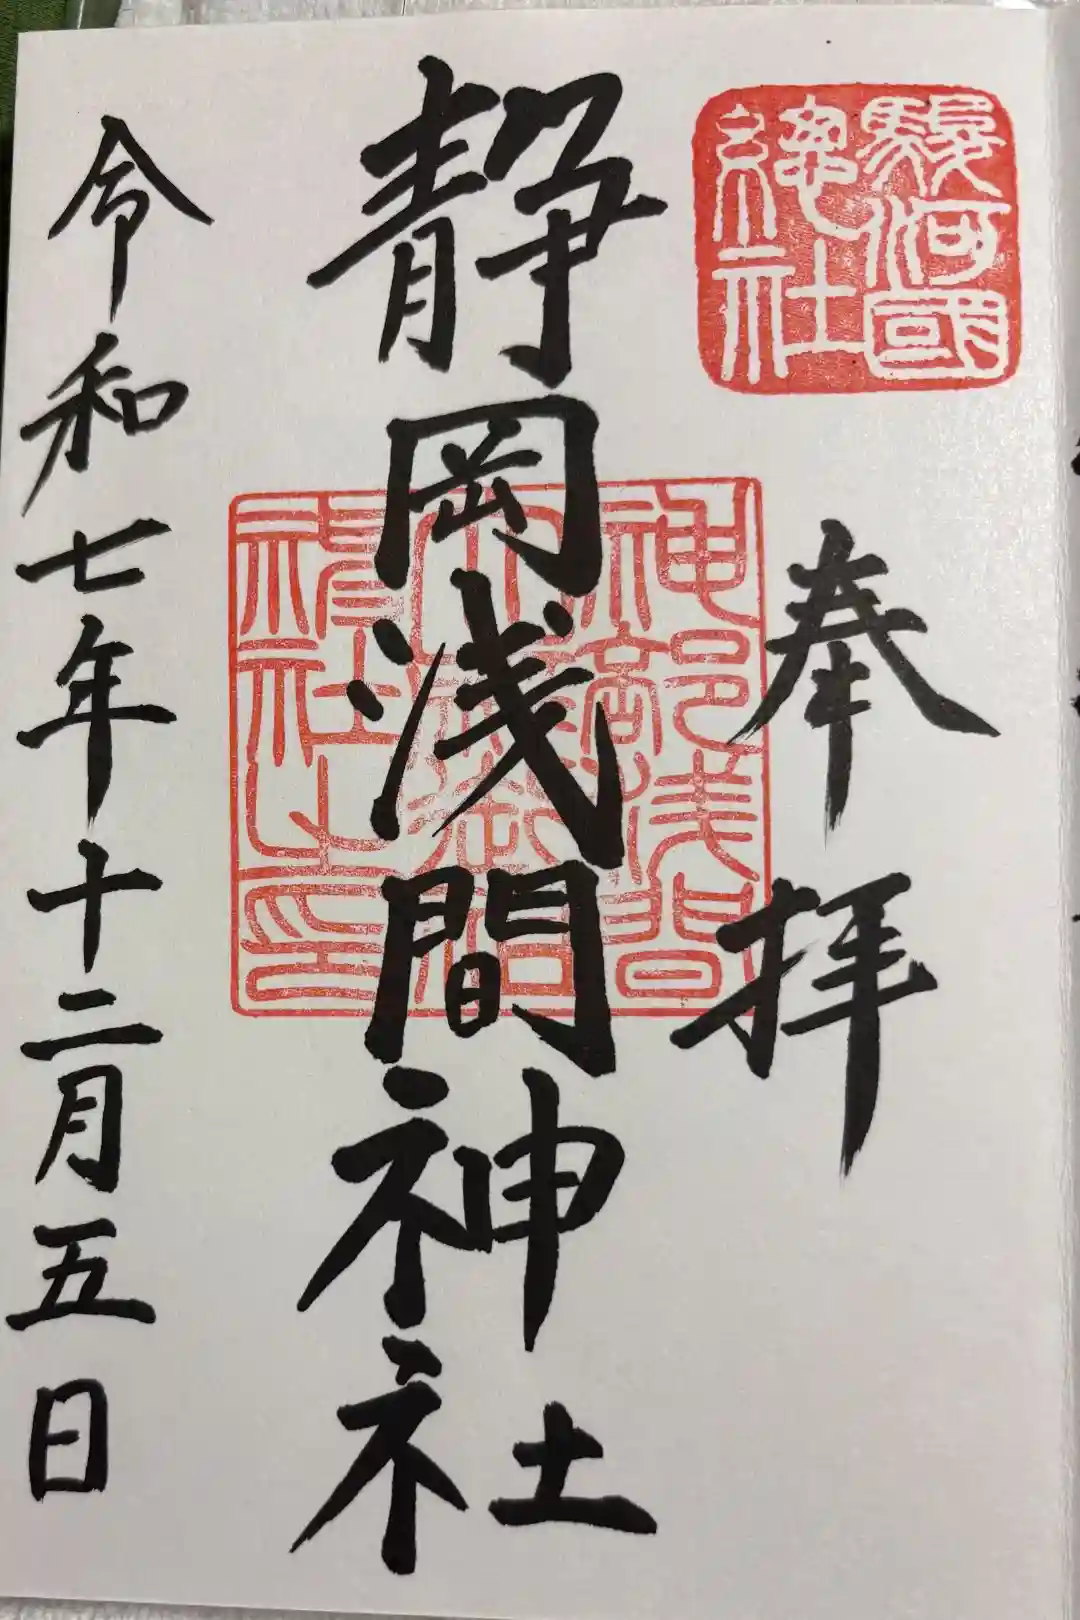 駿河國
總社
奉拝
静岡浅間神社
神部浅間
神社之印
令和七年十二月五日